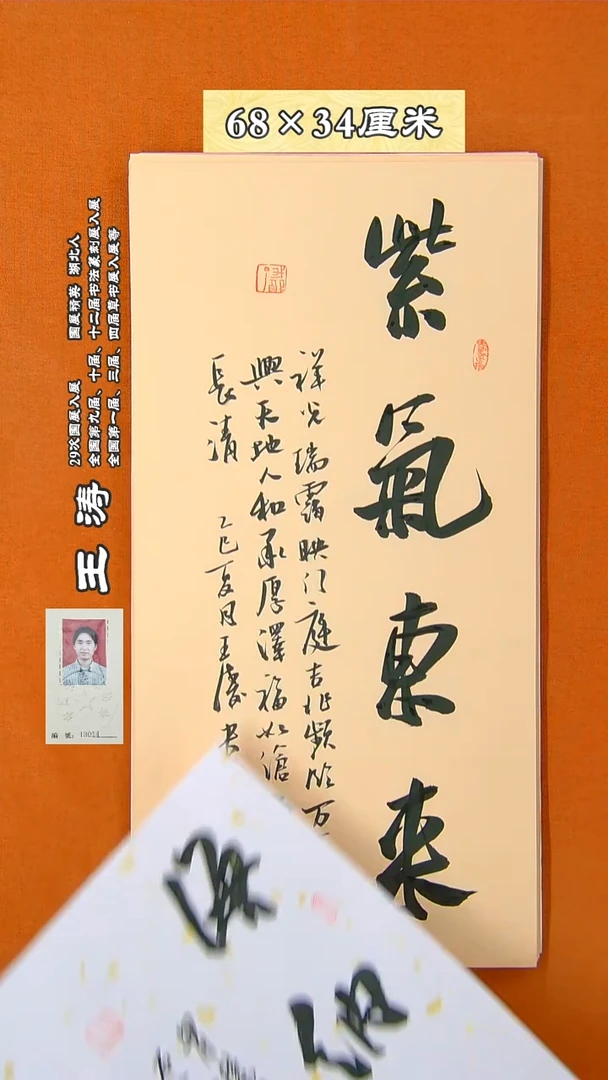 68×34厘米
紫氣東來
祥光瑞靄映門庭吉兆頻臨万
興天地人和承厚澤福如滄
長清
乙巳夏月王濤書
29次国展入展 国展精英 湖北人
全国第九届、十届、十二届书法篆刻展入展
全国第一届、三届、四届草书展入展等
王涛
编 號: